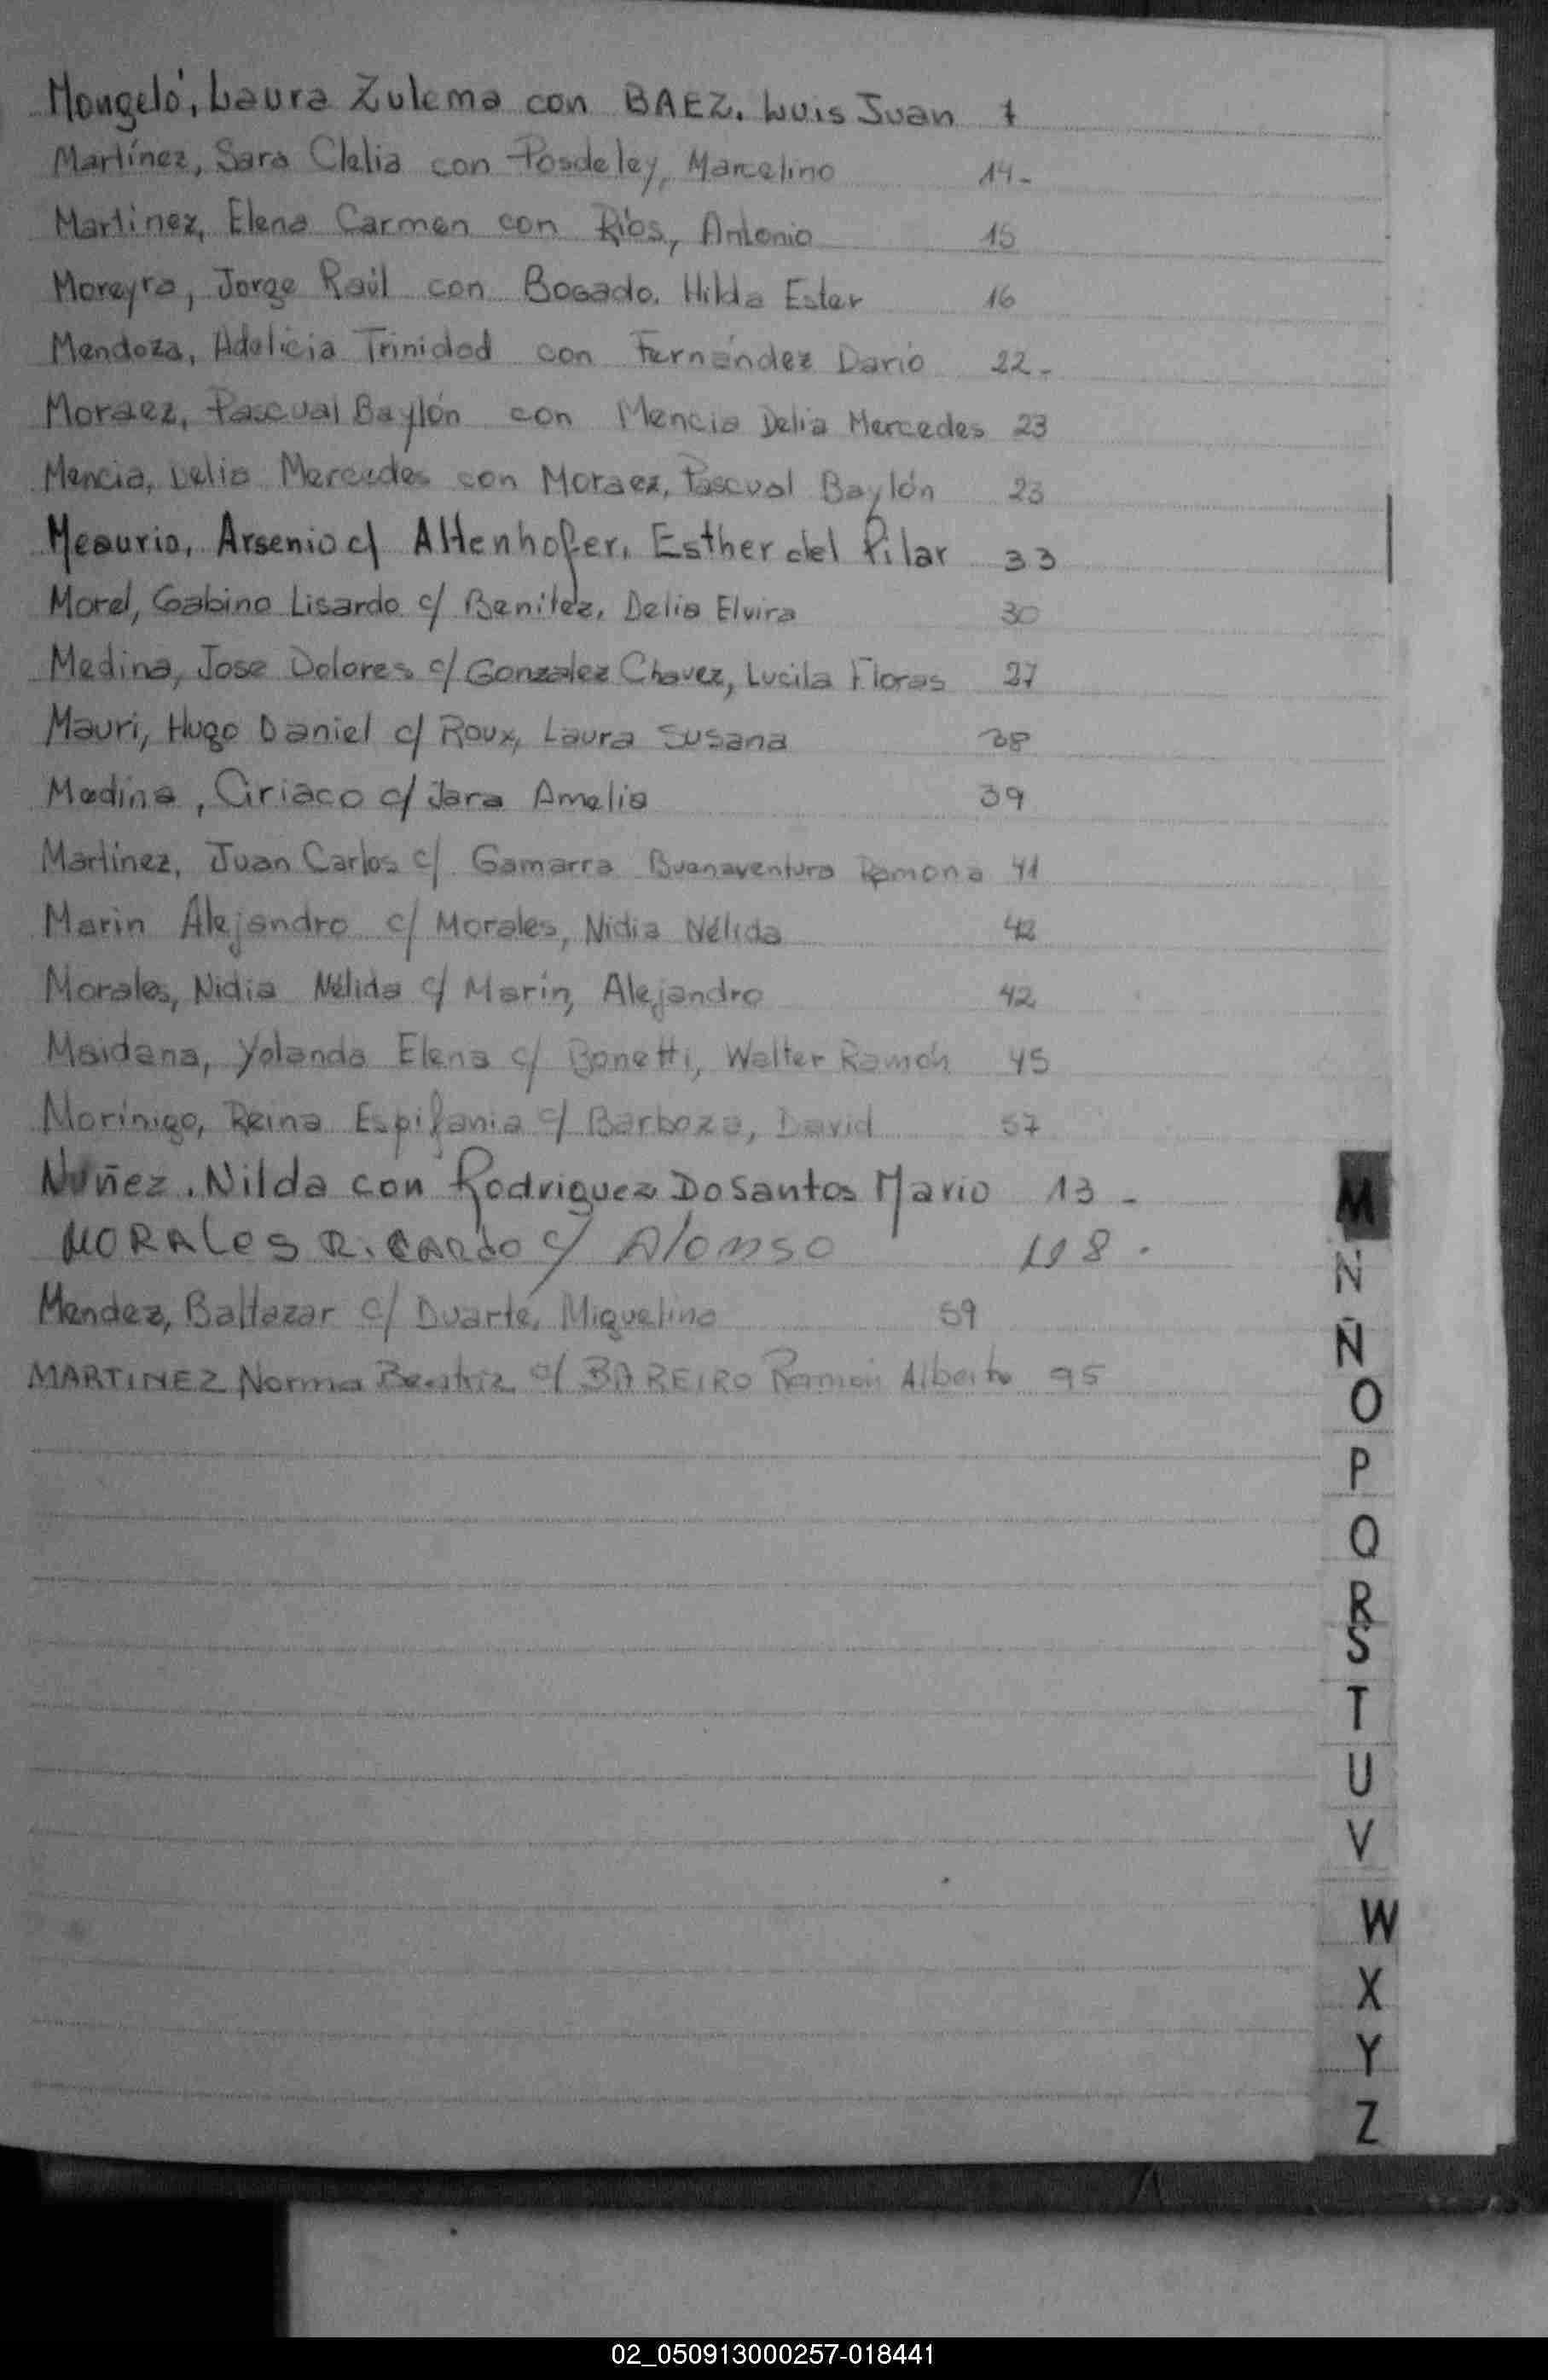 Mongeló, Laura Zulema con BAEZ. Luis Juan 1
Martínez, Sara Clelia con Posdeley, Marcelino 14-
Martinez, Elena Carmen con Ríos, Antonio 15
Moreyra, Jorge Raúl con Bogado. Hilda Ester 16
Mendoza, Adelicia Trinidad con Fernández Darió 22-
Moraez, Pascual Baylón con Mencia Delia Mercedes 23
Mencia, Delia Mercedes con Moraez, Pascual Baylón 23
Meaurio, Arsenio c/ Altenhofer, Esther del Pilar 33
Morel, Gabino Lisardo c/ Benítez, Delia Elvira 30
Medina, Jose Dolores c/ Gonzalez Chavez, Lucila Floras 27
Mauri, Hugo Daniel c/ Roux, Laura Susana 38
Medina, Ciriaco c/ Jara Amelia 39
Martínez, Juan Carlos c/ Gamarra Buenaventura Ramona 41
Marin Alejandro c/ Morales, Nidia Nélida 42
Morales, Nidia Nélida c/ Marín, Alejandro 42
Maidana, Yolanda Elena c/ Bonetti, Walter Ramón 45
Morínigo, Reina Espifania c/ Barboza, David 57
Nuñez. Nilda con Rodriguez DoSantos Mario 13-
MORALES RICARDO c/ Alonso 108.
Mendez, Baltazar c/ Duarte, Miguelina 59
MARTINEZ Norma Beatriz c/ BAREIRO Ramón Alberto 95
M
N
Ñ
O
P
Q
R
S
T
U
V
W
X
Y
Z
02_050913000257-018441